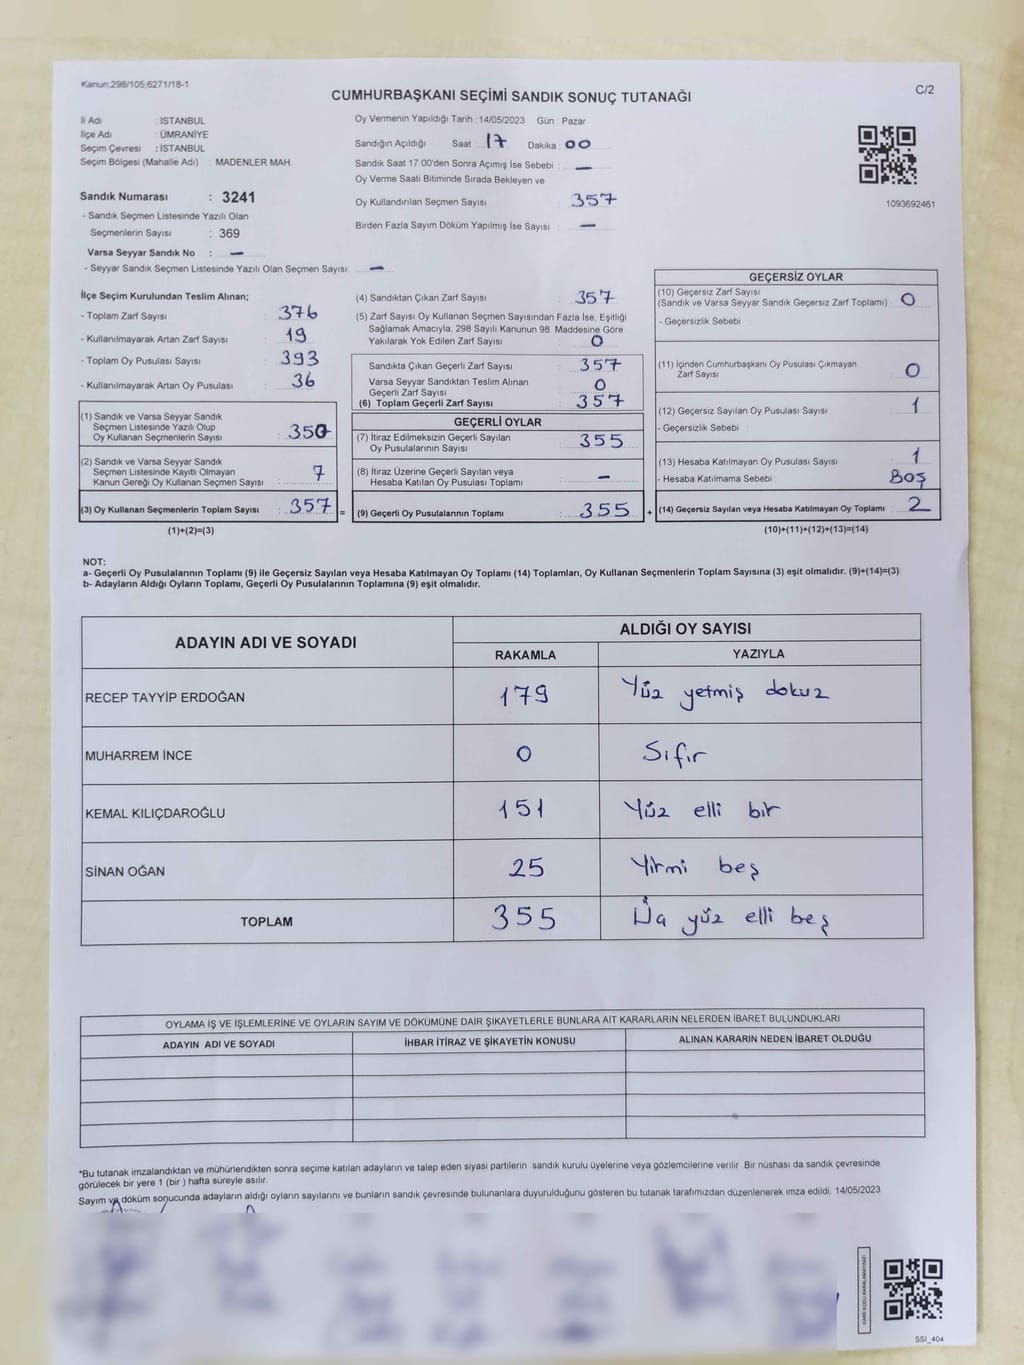 Kanun;298/105;6271/18-1
C/2
CUMHURBAŞKANI SEÇİMİ SANDIK SONUÇ TUTANAĞI
İl Adı : İSTANBUL
İlçe Adı : ÜMRANİYE
Seçim Çevresi : İSTANBUL
Seçim Bölgesi (Mahalle Adı) : MADENLER MAH.
Sandık Numarası : 3241
- Sandık Seçmen Listesinde Yazılı Olan
Seçmenlerin Sayısı : 369
Varsa Seyyar Sandık No : —
- Seyyar Sandık Seçmen Listesinde Yazılı Olan Seçmen Sayısı: —
Oy Vermenin Yapıldığı Tarih : 14/05/2023 Gün : Pazar
Sandığın Açıldığı Saat : 17 Dakika : 00
Sandık Saat 17:00'den Sonra Açımış İse Sebebi : —
Oy Verme Saati Bitiminde Sırada Bekleyen ve
Oy Kullandırılan Seçmen Sayısı : 357
Birden Fazla Sayım Döküm Yapılmış İse Sayısı : —
1093692461
İlçe Seçim Kurulundan Teslim Alınan;
- Toplam Zarf Sayısı : 376
- Kullanılmayarak Artan Zarf Sayısı : 19
- Toplam Oy Pusulası Sayısı : 393
- Kullanılmayarak Artan Oy Pusulası : 36
(1) Sandık ve Varsa Seyyar Sandık
Seçmen Listesinde Yazılı Olup
Oy Kullanan Seçmenlerin Sayısı : 350
(2) Sandık ve Varsa Seyyar Sandık
Seçmen Listesinde Kayıtlı Olmayan
Kanun Gereği Oy Kullanan Seçmen Sayısı : 7
(3) Oy Kullanan Seçmenlerin Toplam Sayısı : 357 =
(1)+(2)=(3)
(4) Sandıktan Çıkan Zarf Sayısı : 357
(5) Zarf Sayısı Oy Kullanan Seçmen Sayısından Fazla İse, Eşitliği
Sağlamak Amacıyla, 298 Sayılı Kanunun 98. Maddesine Göre
Yakılarak Yok Edilen Zarf Sayısı : 0
Sandıkta Çıkan Geçerli Zarf Sayısı : 357
Varsa Seyyar Sandıktan Teslim Alınan
Geçerli Zarf Sayısı : 0
(6) Toplam Geçerli Zarf Sayısı : 357
GEÇERLİ OYLAR
(7) İtiraz Edilmeksizin Geçerli Sayılan
Oy Pusulalarının Sayısı : 355
(8) İtiraz Üzerine Geçerli Sayılan veya
Hesaba Katılan Oy Pusulası Toplamı : —
(9) Geçerli Oy Pusulalarının Toplamı : 355 +
GEÇERSİZ OYLAR
(10) Geçersiz Zarf Sayısı
(Sandık ve Varsa Seyyar Sandık Geçersiz Zarf Toplamı) : 0
- Geçersizlik Sebebi :
(11) İçinden Cumhurbaşkanı Oy Pusulası Çıkmayan
Zarf Sayısı : 0
(12) Geçersiz Sayılan Oy Pusulası Sayısı : 1
- Geçersizlik Sebebi :
(13) Hesaba Katılmayan Oy Pusulası Sayısı : 1
- Hesaba Katılmama Sebebi : BOŞ
(14) Geçersiz Sayılan veya Hesaba Katılmayan Oy Toplamı : 2
(10)+(11)+(12)+(13)=(14)
NOT:
a- Geçerli Oy Pusulalarının Toplamı (9) ile Geçersiz Sayılan veya Hesaba Katılmayan Oy Toplamı (14) Toplamları, Oy Kullanan Seçmenlerin Toplam Sayısına (3) eşit olmalıdır. (9)+(14)=(3)
b- Adayların Aldığı Oyların Toplamı, Geçerli Oy Pusulalarının Toplamına (9) eşit olmalıdır.
ADAYIN ADI VE SOYADI ALDIĞI OY SAYISI
RAKAMLA YAZIYLA
RECEP TAYYİP ERDOĞAN 179 Yüz yetmiş dokuz
MUHARREM İNCE 0 Sıfır
KEMAL KILIÇDAROĞLU 151 Yüz elli bir
SİNAN OĞAN 25 Yirmi beş
TOPLAM 355 yüz elli beş
OYLAMA İŞ VE İŞLEMLERİNE VE OYLARIN SAYIM VE DÖKÜMÜNE DAİR ŞİKAYETLERLE BUNLARA AİT KARARLARIN NELERDEN İBARET BULUNDUKLARI
ADAYIN ADI VE SOYADI İHBAR İTİRAZ VE ŞİKAYETİN KONUSU ALINAN KARARIN NEDEN İBARET OLDUĞU
*Bu tutanak imzalandıktan ve mühürlendikten sonra seçime katılan adayların ve talep eden siyasi partilerin sandık kurulu üyelerine veya gözlemcilerine verilir. Bir nüshası da sandık çevresinde
görülecek bir yere 1 (bir ) hafta süreyle asılır.
Sayım ve döküm sonucunda adayların aldığı oyların sayılarını ve bunların sandık çevresinde bulunanlara duyurulduğunu gösteren bu tutanak tarafımızdan düzenlenerek imza edildi. 14/05/2023
KARE KODU KARALAMAYINIZ!
SSI_404